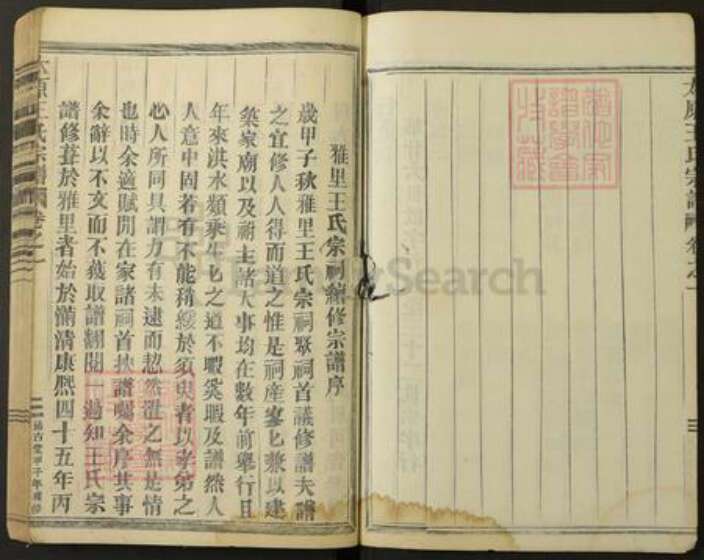 太原王氏宗譜 卷之一
雅里王氏宗祠續修宗譜序
歲甲子秋雅里王氏宗祠聚祠首議修譜夫譜
之宜修人人得而道之惟是祠產寥匕兼以建
築家廟以及祔主諸大事均在數年前舉行且
年來洪水頻乘生匕之道不暇奚暇及譜然人
人意中固若有不能稍緩於須臾者以孝弟之
心人所同具謂力有未逮而恝然置之無是情
也時余適賦閒在家諸祠首挾譜囑余序其事
余辭以不文而不獲取譜翻閱一過知王氏宗
譜修葺於雅里者始於前清康熙四十五年丙
太原王氏宗譜 卷之一
甲子年續修
FamilySearch